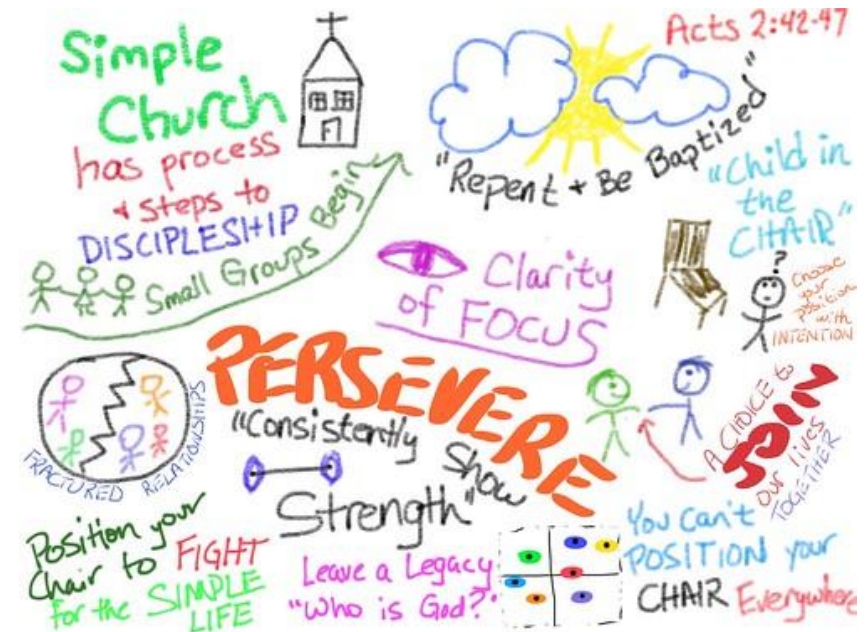 Simple
Church
has process
+ steps to
DISCIPLESHIP
Small Groups Begin
Acts 2:42-47
"Repent + Be Baptized"
"Child in
the
CHAIR"
?
Choose
your
position
with
INTENTION
Clarity
of FOCUS
PERSEVERE
"Consistently
Show
Strength"
FRACTURED RELATIONSHIPS
A CHOICE to
JOIN
our lives
TOGETHER
Position your
Chair to FIGHT
for the SIMPLE
LIFE
Leave a Legacy
"Who is God?"
You Can't
POSITION your
CHAIR Everywhere